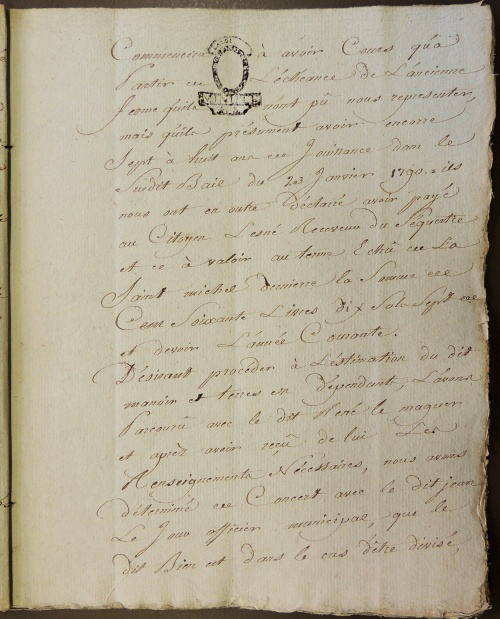 Commencera à avoir Cours qu'à
Partir de L'écheance de L'ancienne
ferme quils n'ont pû nous representer,
mais qu'ils présument avoir encorre
Sept à huit ans de Jouissance dans le
Susdit Bail du 23 Janvier 1790. ils
nous ont en outre Déclaré avoir payé
au Citoyen Lesné Receveur du Séquestre
et ce à valoir au terme Echû de La
Saint michel derniere la Somme de
Cent Soixante Livres dix Sols Sept de
et devoir L'année Courante.
Désirant procéder à L'estimation du dit
manoir et terres en Dépendants, L'avons
Parcouru avec le dit René le maguer
et après avoir reçu de lui Les
Renseignements Nécessaires, nous avons
détérminé de Concert avec le dit jean
Le Jouo officier municipal, que le
dit Bien est dans le cas d'être divisé,